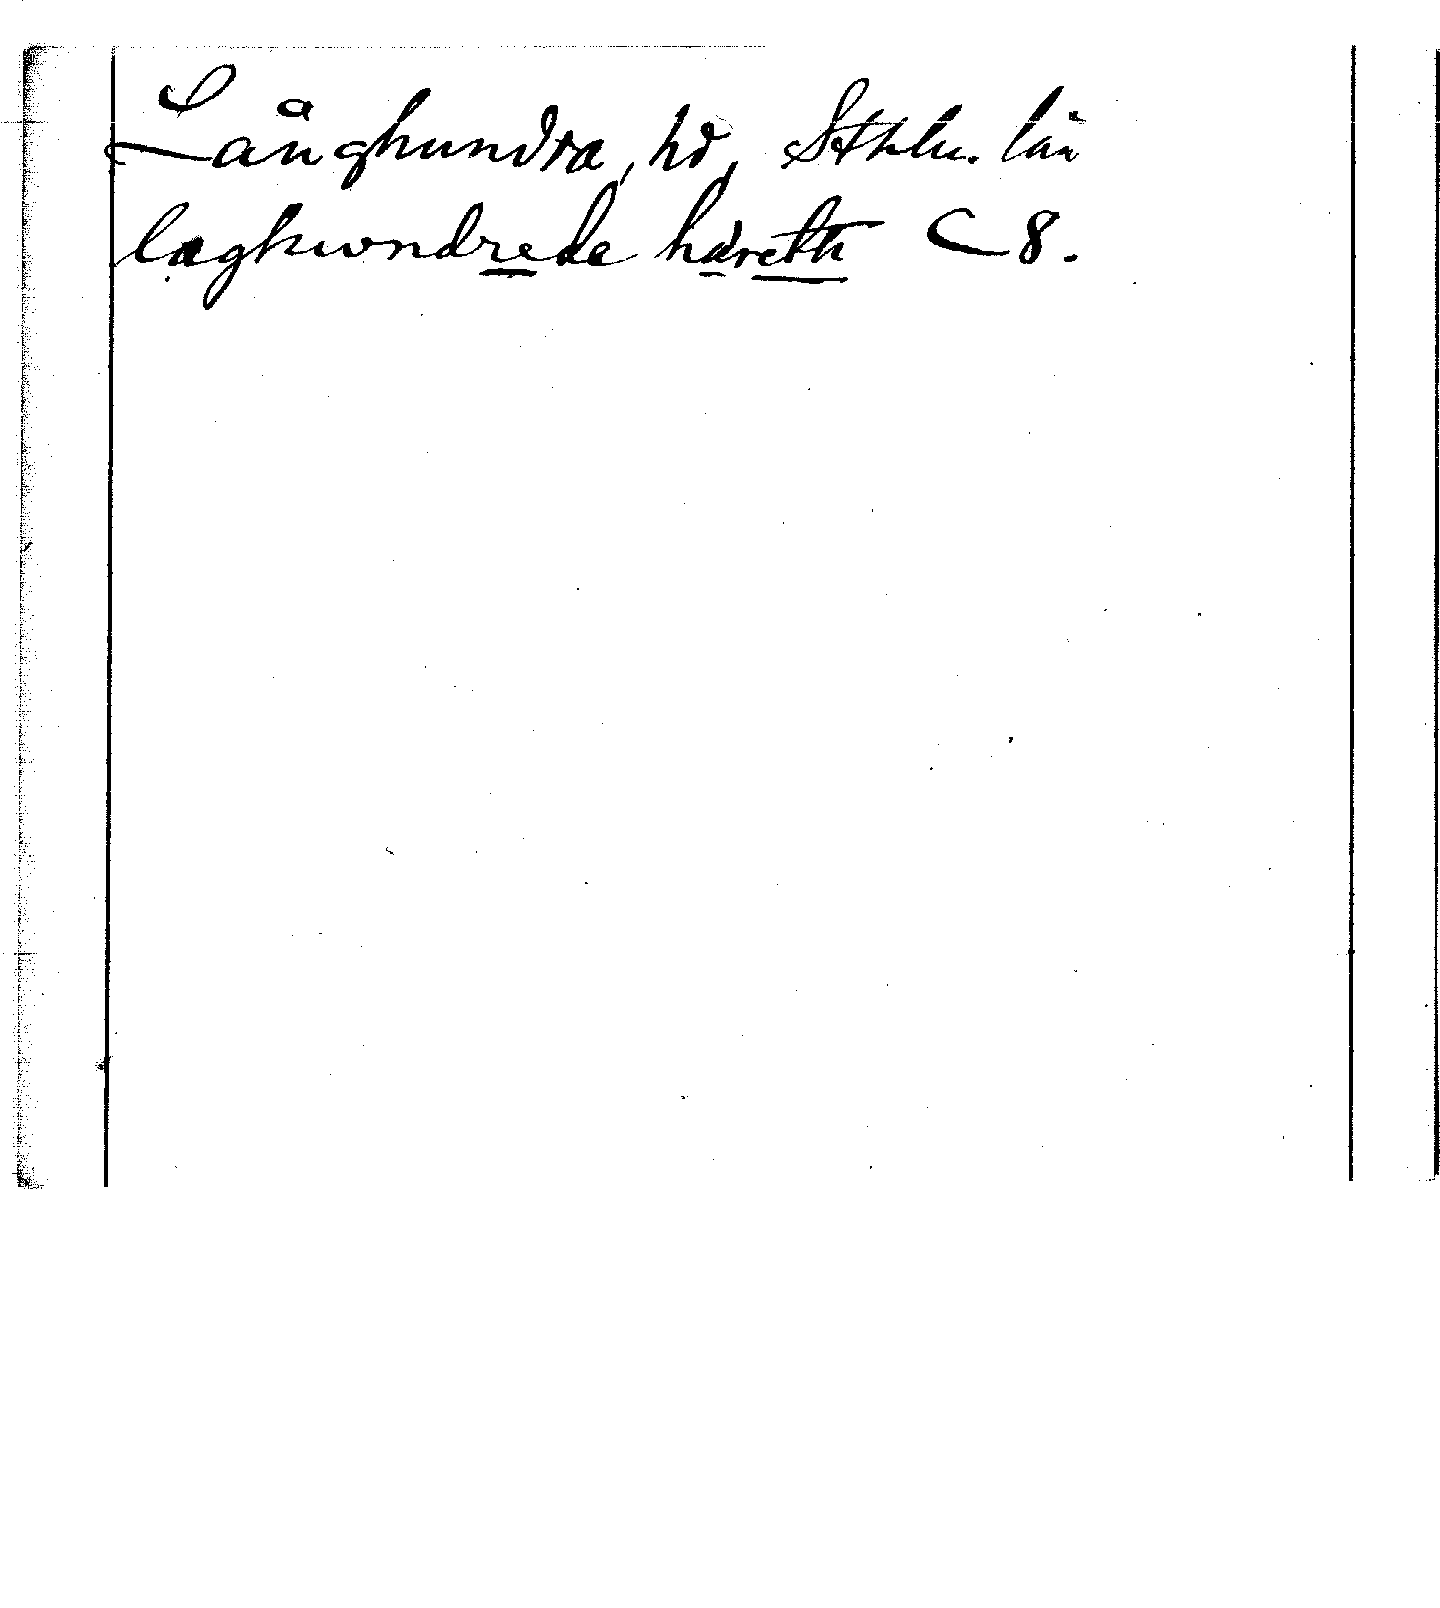 Långhundra, hd, Sthlm. län
laghwndrede häreth C 8.